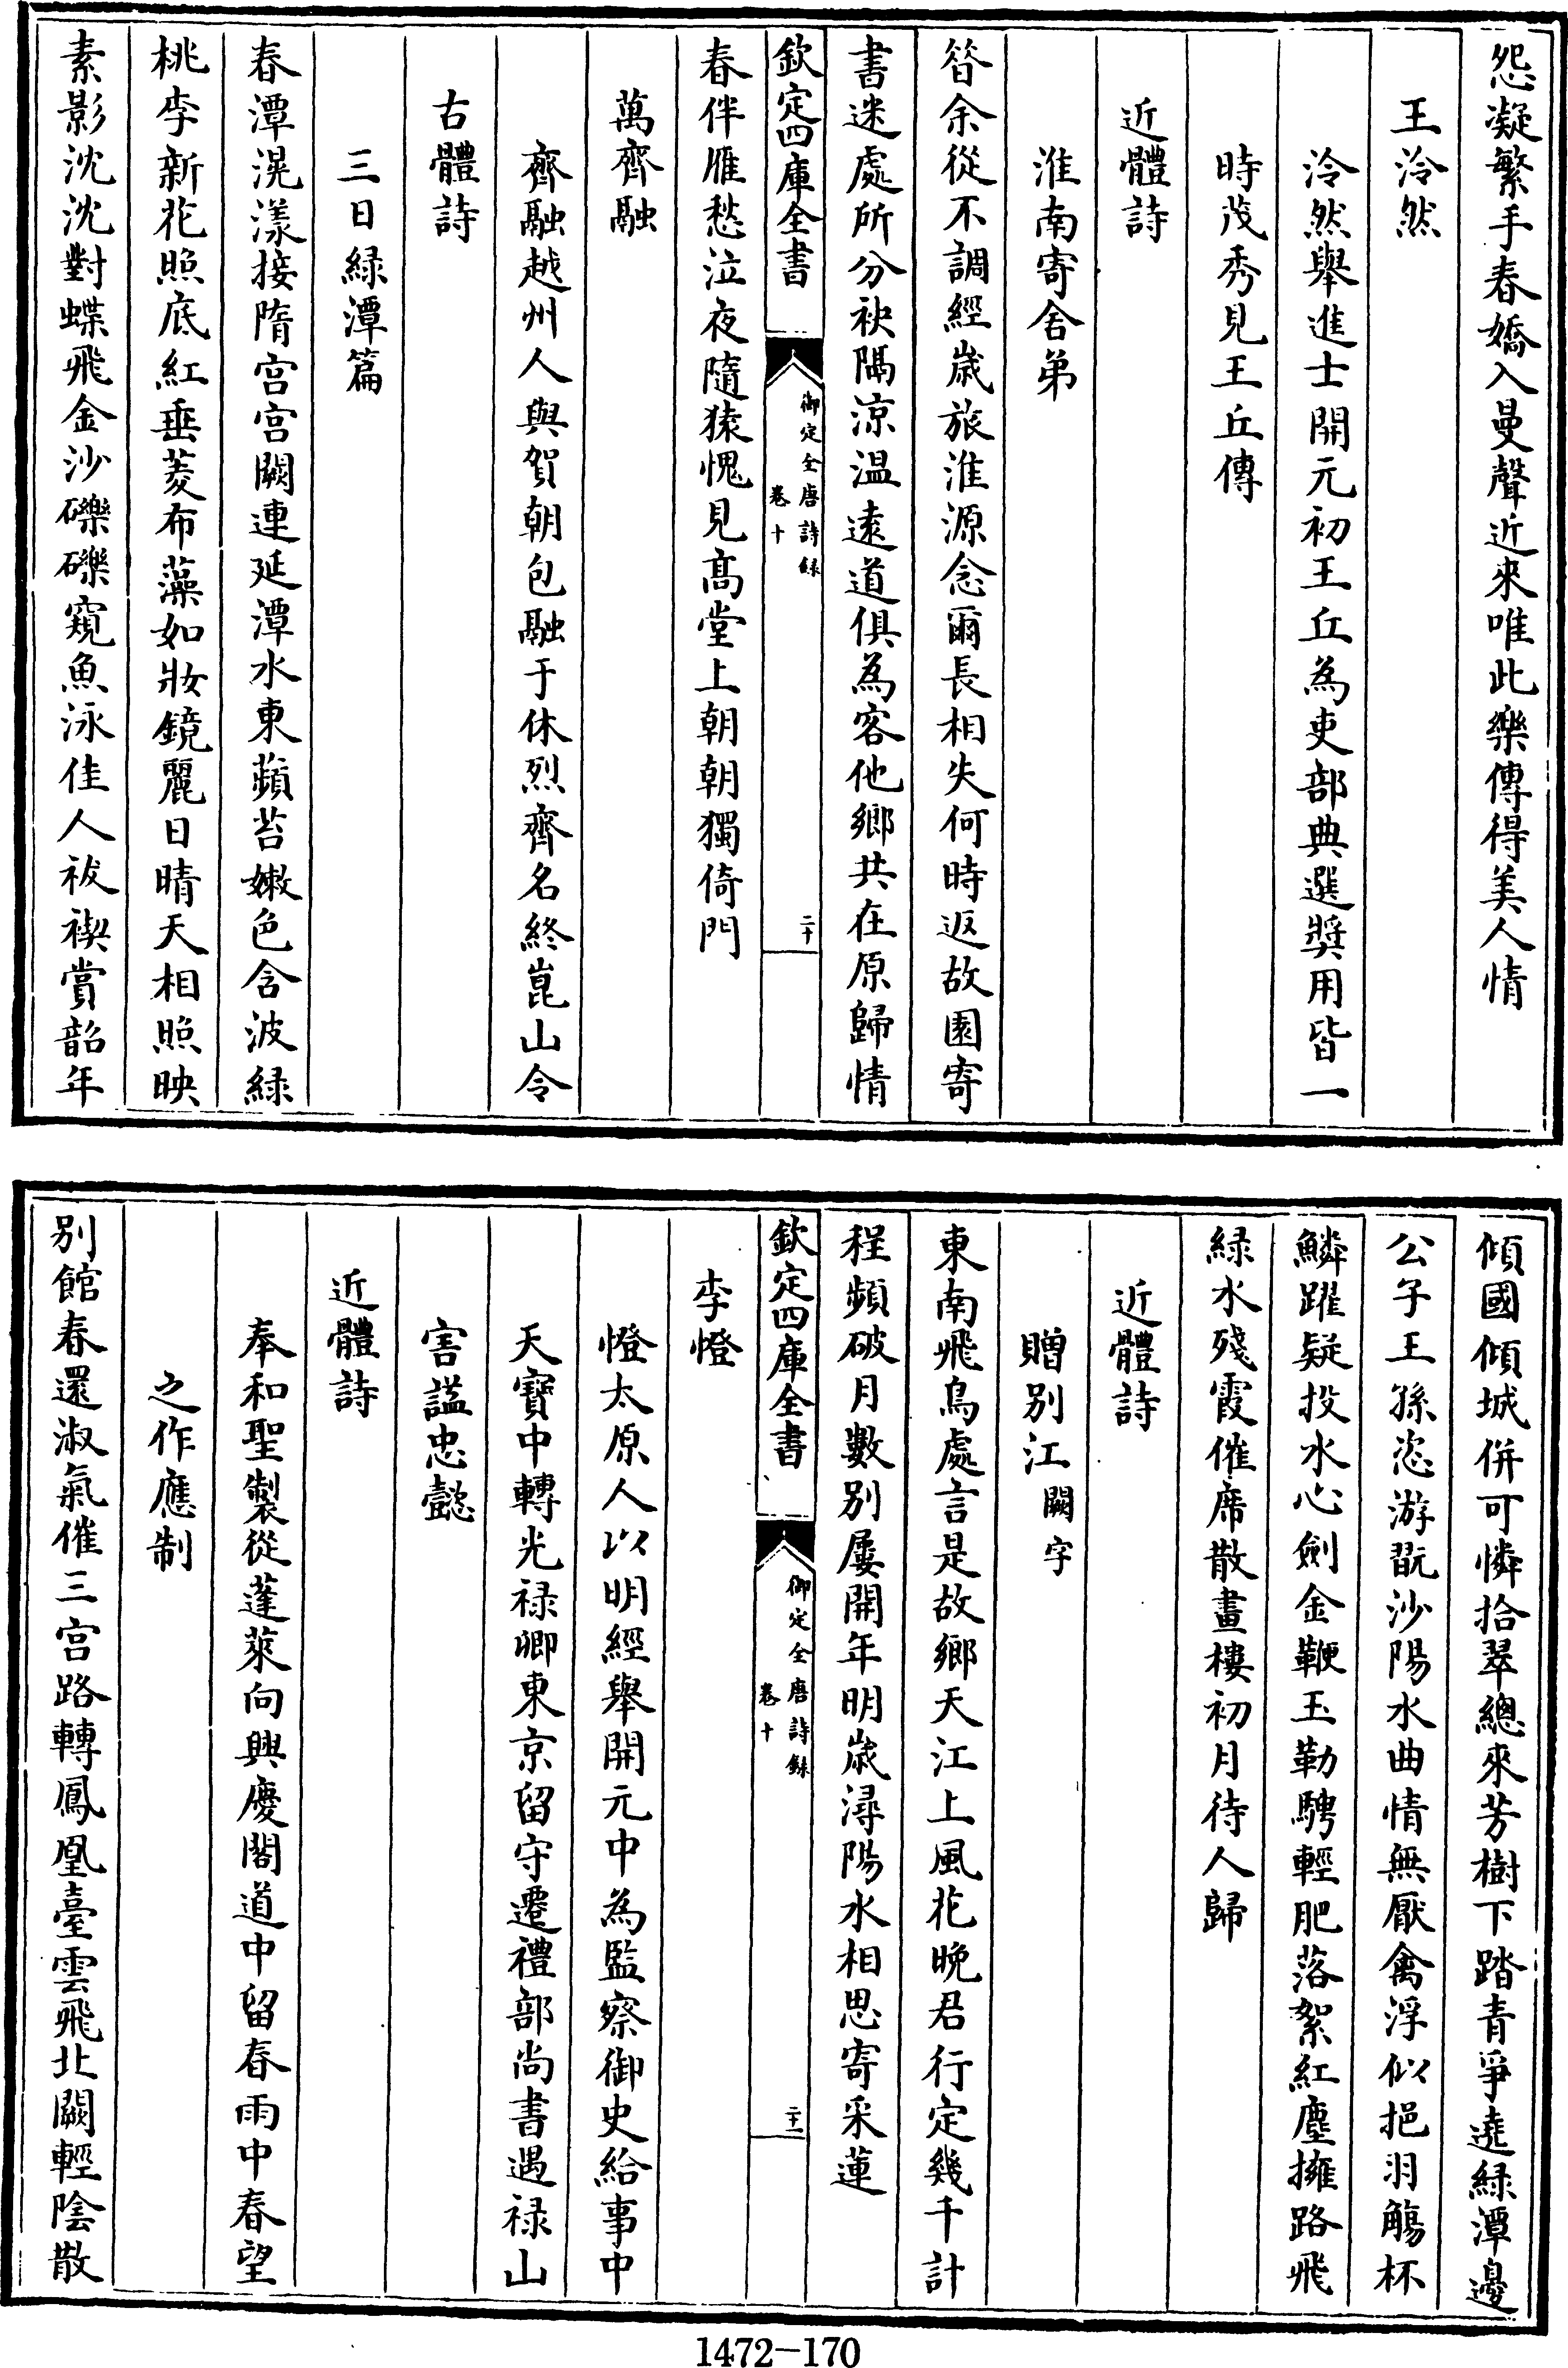 怨凝繁手春嬌入曼聲近來唯此樂傳得美人情
王泠然
泠然舉進士開元初王丘為吏部典選奬用皆一
時茂秀見王丘傳
近體詩
淮南寄舍弟
昝余從不調經歳旅淮源念爾長相失何時返故園寄
書迷處所分袂隔涼温遠道俱為客他鄉共在原歸情
欽定四庫全書
御定全唐詩録
卷十
二十
春伴雁愁泣夜隨猿愧見髙堂上朝朝獨倚門
萬齊融
齊融越州人與賀朝包融于休烈齊名終崑山令
古體詩
三日緑潭篇
春潭滉漾接隋宫宫闕連延潭水東蘋苔嫩色含波緑
桃李新花照底紅垂菱布藻如妝鏡麗日晴天相照映
素影沈沈對蝶飛金沙礫礫窺魚泳佳人祓禊賞韶年
傾國傾城併可憐拾翠總來芳樹下踏青爭遶緑潭邊
公子王孫恣游翫沙陽水曲情無厭禽浮似挹羽觴杯
鱗躍疑投水心劍金鞭玉勒騁輕肥落絮紅塵擁路飛
緑水殘霞催席散畫樓初月待人歸
近體詩
贈别江闕字
東南飛鳥處言是故鄉天江上風花晚君行定幾千計
程頻破月數别屢開年明歳潯陽水相思寄采蓮
欽定四庫全書
御定全唐詩錄
卷十
二十一
李憕
憕太原人以明經舉開元中為監察御史給事中
天寶中轉光禄卿東京留守遷禮部尚書遇禄山
害謚忠懿
近體詩
奉和聖製從蓬萊向興慶閣道中留春雨中春望
之作應制
别館春還淑氣催三宫路轉鳳凰臺雲飛北闕輕陰散
1472-170